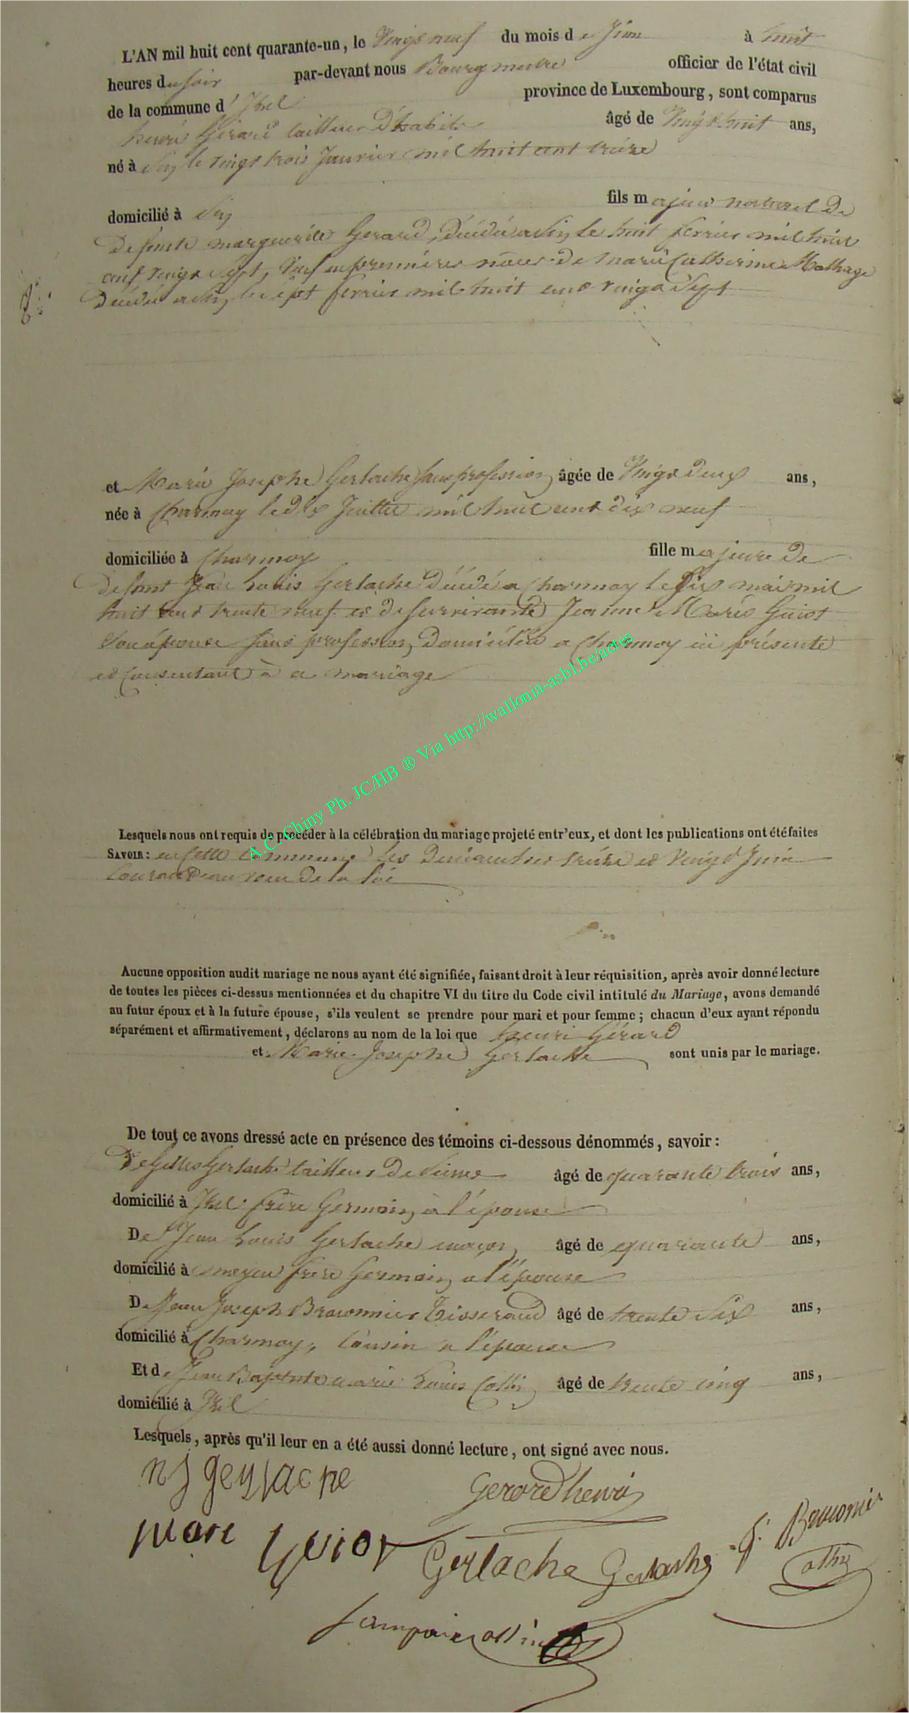 L'AN mil huit cent quarante-un, le Vingt neuf du mois de Juin à huit
heures du soir par-devant nous Bourgmestre officier de l'état civil
de la commune d'Izel province de Luxembourg, sont comparus
henri Gérard tailleur D'habits âgé de Vingt huit ans,
né à le vingt trois Janvier mil huit cent treize
domicilié à fils majeur naturel De
Defunte marguerite Gerard, Décédée a le huit fevrier mil huit
cent vingt sept, Veuf en premières noces de marie Catherine
Décédée a le sept fevrier mil huit cent vingt Sept
et Marie Josephe Gerlache sans profession, âgée de Vingt deux ans,
née à Charmoy le dix Juillet mil huit cent dix neuf
domiciliée à Charmoy fille majeure de
Defunt Jean Louis Gerlache Décédé a Charmoy le Dix mai mil
huit cent trente neuf et de survivante Jeanne Marie Guiot
Son épouse sans profession, Domiciliée a Charmoy ici présente
et Consentant à ce mariage
A.C. Chiny Ph. JC/HB ® Via http://wallonia-asbl.be/actes
Lesquels nous ont requis de procéder à la célébration du mariage projeté entr'eux, et dont les publications ont été faites
SAVOIR: en cette Commune les Dimanches treize et Vingt Juin
Courant au voeu De la loi
Aucune opposition audit mariage ne nous ayant été signifiée, faisant droit à leur réquisition, après avoir donné lecture
de toutes les pièces ci-dessus mentionnées et du chapitre VI du titre du Code civil intitulé du Mariage, avons demandé
au futur époux et à la future épouse, s'ils veulent se prendre pour mari et pour femme; chacun d'eux ayant répondu
séparément et affirmativement, déclarons au nom de la loi que henri Gérard
et Marie Josephe Gerlache sont unis par le mariage.
De tout ce avons dressé acte en présence des témoins ci-dessous dénommés, savoir:
De Gilles Gerlache tailleur De Pierre âgé de quarante trois ans,
domicilié à Izel frère Germain, à l'épouse
De Jean Louis Gerlache maçon, âgé de quarante ans,
domicilié à moyen frère Germain, a l'épouse
De Jean Joseph Braconnier Tisserand âgé de trente Six ans,
domicilié à Charmoy, Cousin a l'épouse
Et de Jean Baptiste marie Louis Collin, âgé de trente cinq ans,
domicilié à Izel
Lesquels, après qu'il leur en a été aussi donné lecture, ont signé avec nous.
m j gerlache Gerard henri
mari guiot Gerlache Gerlache J. Braconnier